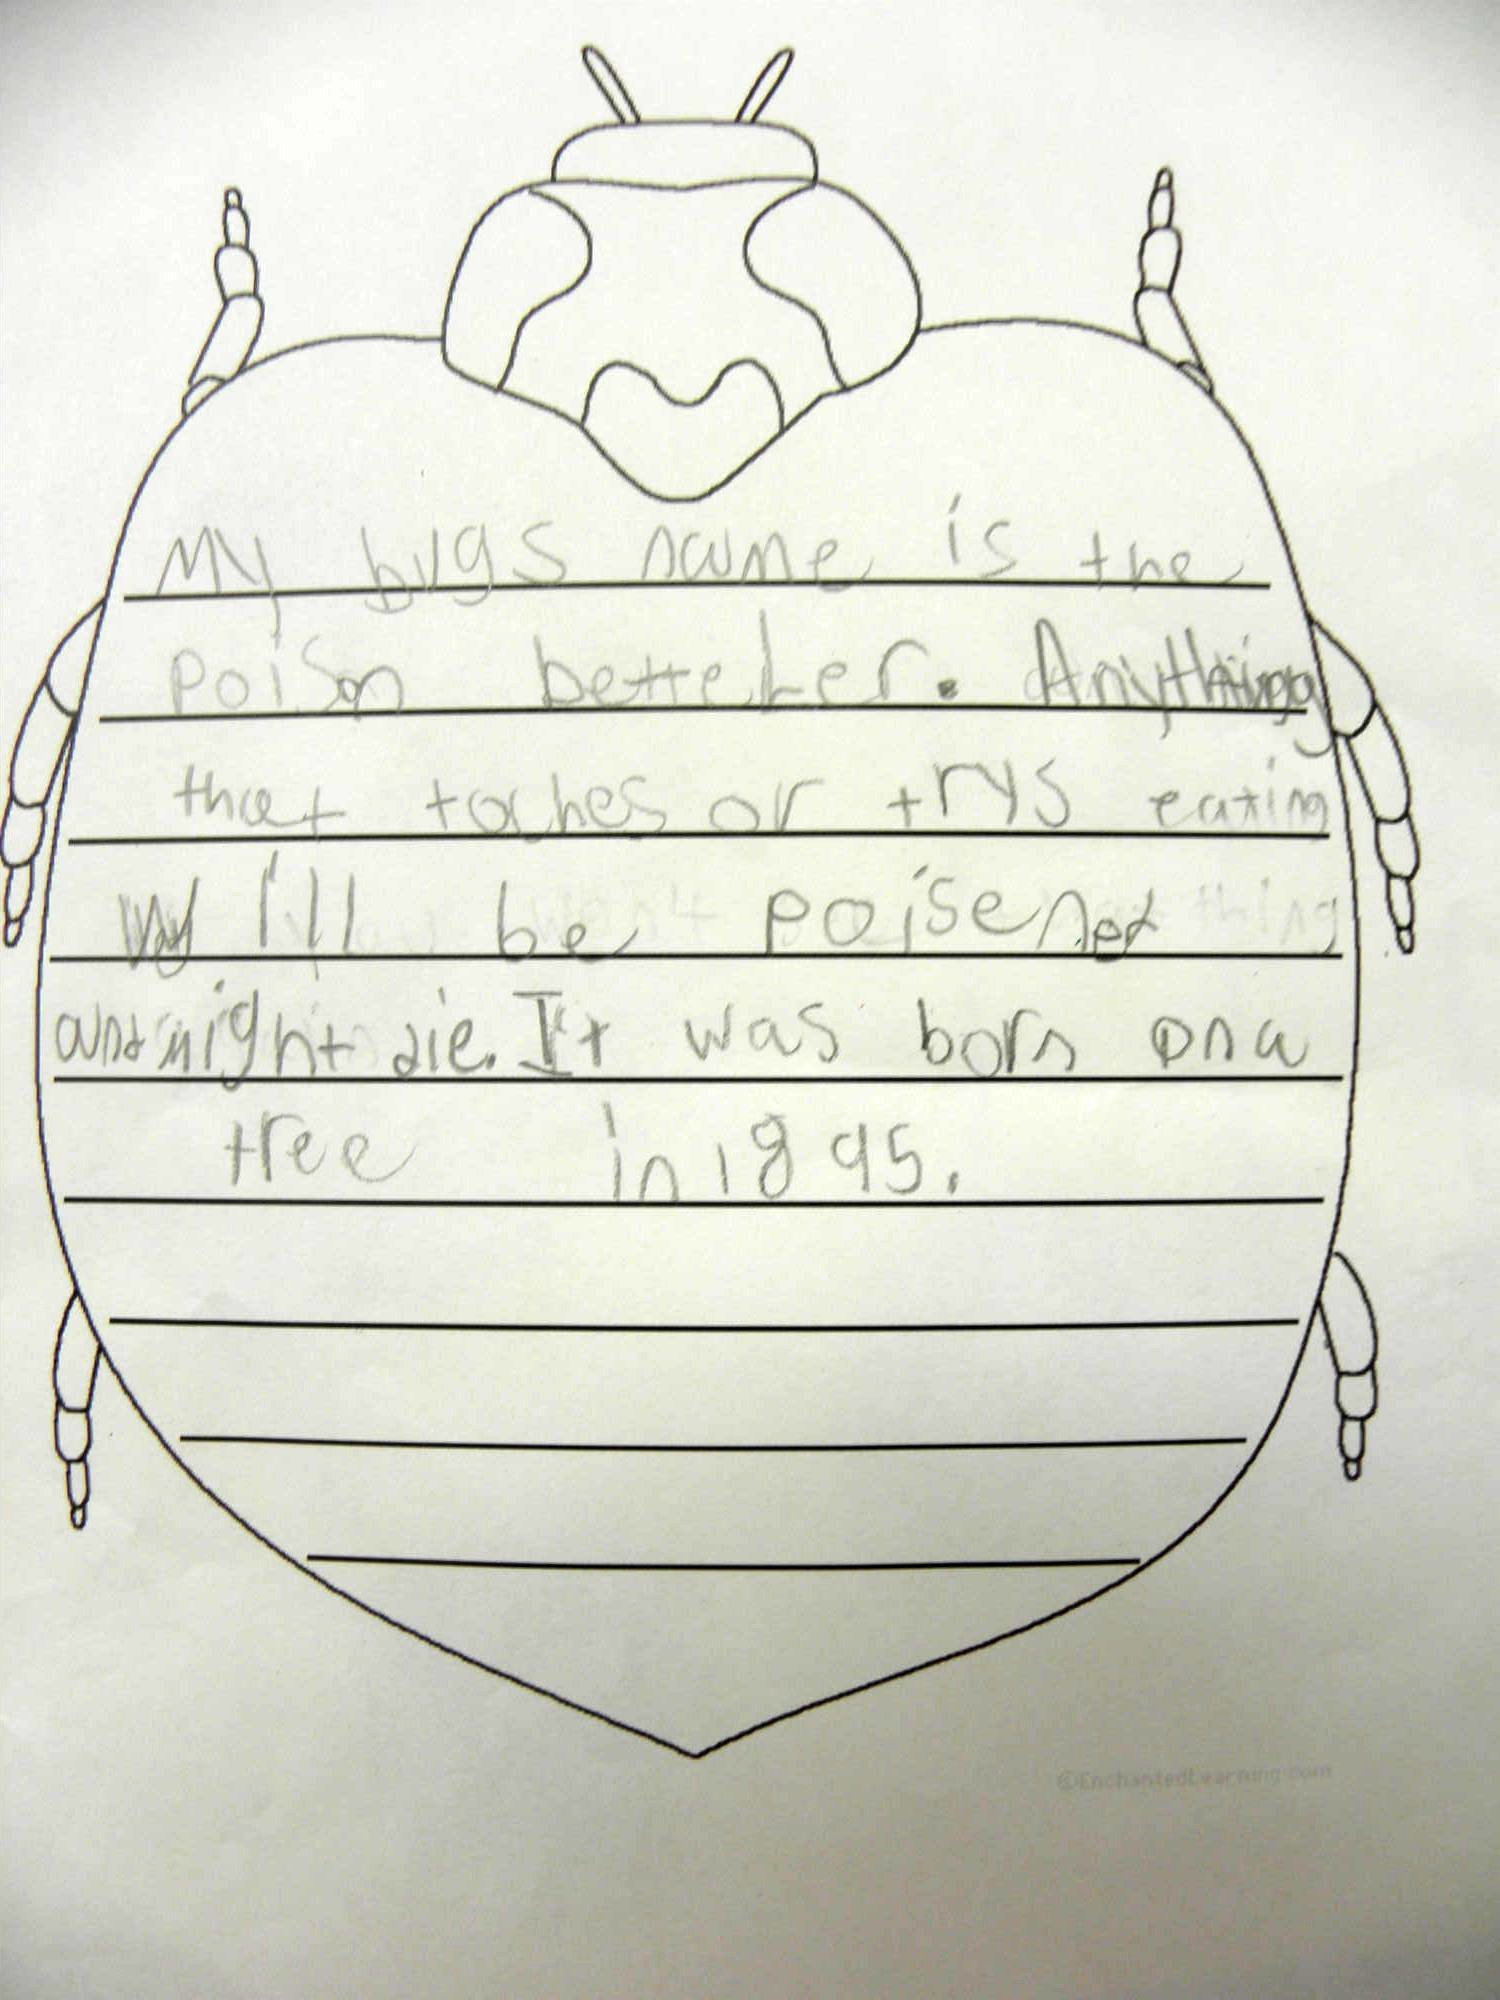 My bugs name is the
poison betteler. Anything
that toches or trys eating
will be poisened
and might die. It was born on a
tree in 1895.
©EnchantedLearning.com